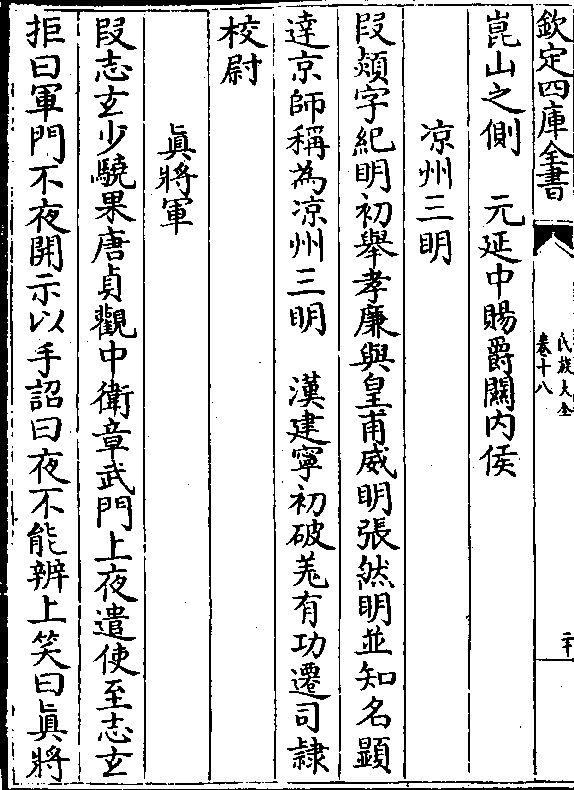 欽定四庫全書
氏族大全
卷十八
二十
崑山之側　元延中賜爵關内侯
涼州三明
段熲字紀明初舉孝廉與皇甫威明張然明並知名顯
達京師稱為涼州三明　漢建寧初破羌有功遷司隸
校尉
眞將軍
段志玄少驍果唐貞觀中衛章武門上夜遣使至志玄
拒曰軍門不夜開示以手詔曰夜不能辨上笑曰眞將